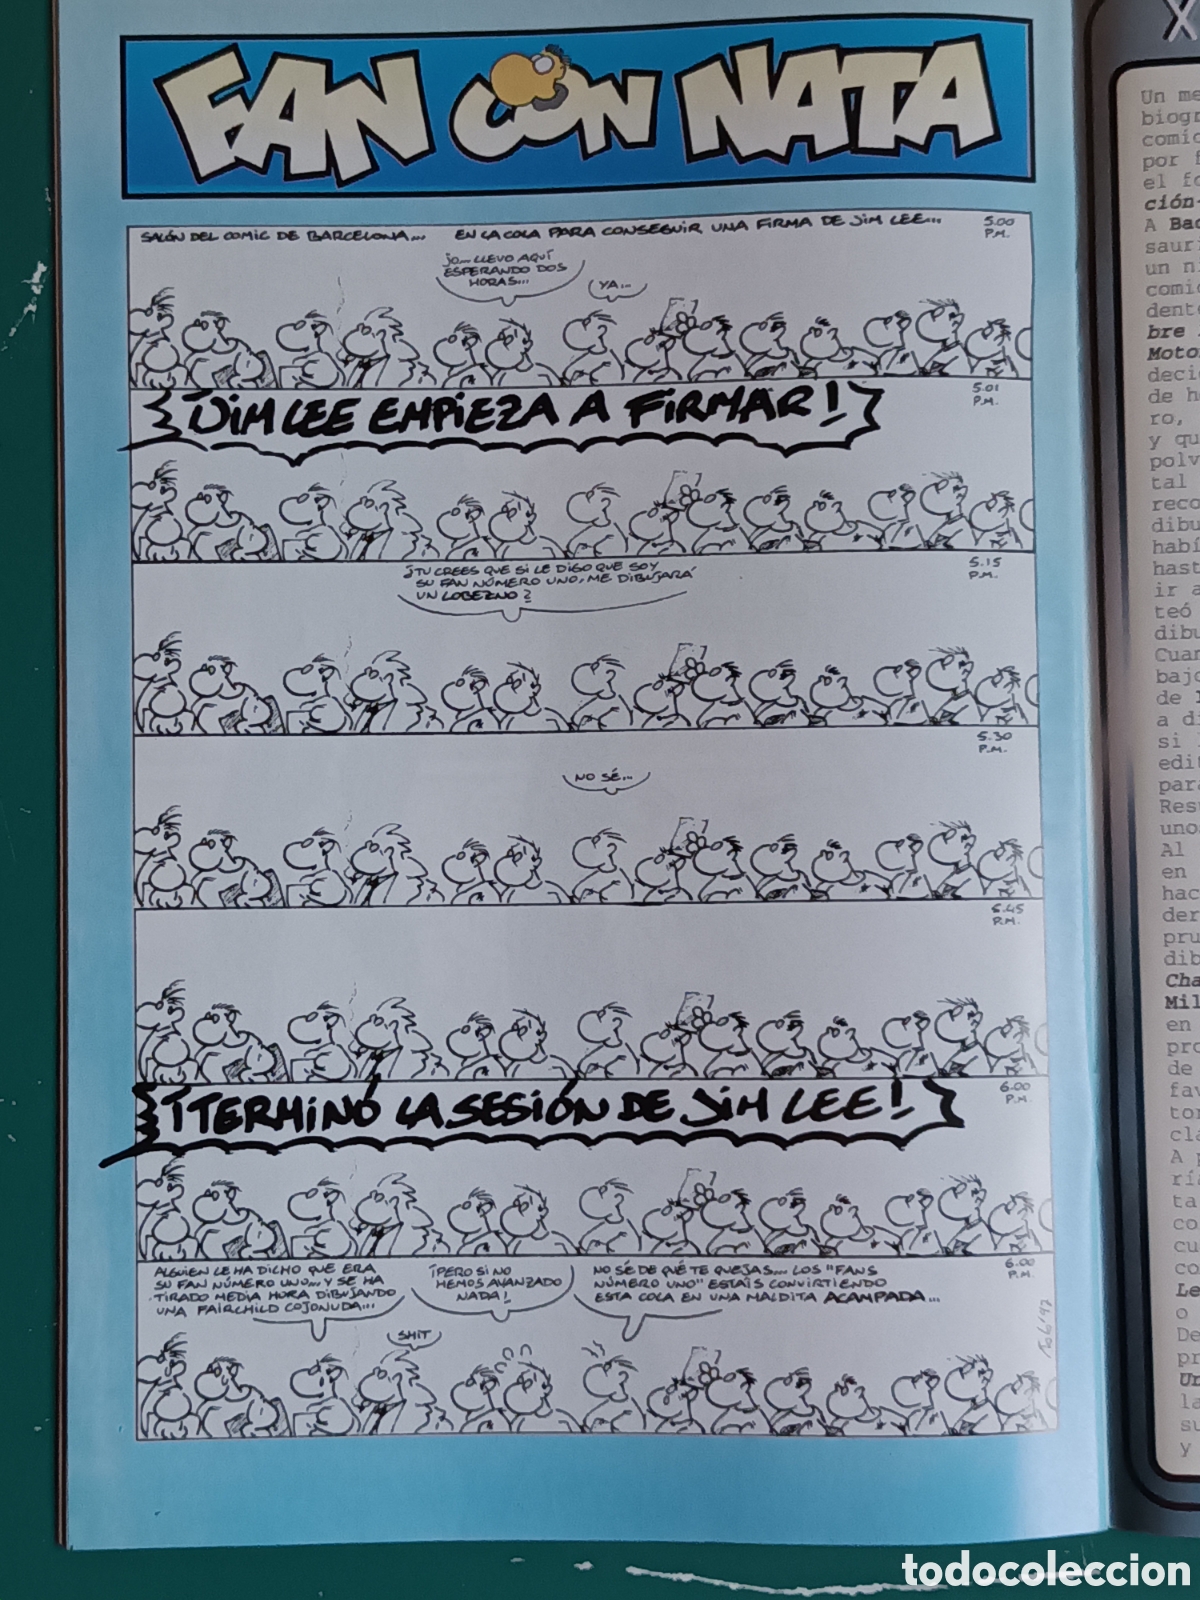 FAN CON NATA
SALÓN DEL COMIC DE BARCELONA... EN LA COLA PARA CONSEGUIR UNA FIRMA DE JIM LEE...
5.00
P.M.
JO... LLEVO AQUÍ
ESPERANDO DOS
HORAS...
YA...
¡JIM LEE EMPIEZA A FIRMAR!
5.01
P.M.
¿TU CREES QUE SI LE DIGO QUE SOY
SU FAN NÚMERO UNO, ME DIBUJARÁ
UN LOBEZNO?
5.15
P.M.
5.30
P.M.
NO SÉ...
5.45
P.M.
¡TERMINÓ LA SESIÓN DE JIM LEE!
6.00
P.M.
ALGUIEN LE HA DICHO QUE ERA
SU FAN NÚMERO UNO... Y SE HA
TIRADO MEDIA HORA DIBUJANDO
UNA FAIRCHILD COJONUDA...
¡PERO SI NO
HEMOS AVANZADO
NADA!
NO SÉ DE QUÉ TE QUEJAS... LOS "FANS
NÚMERO UNO" ESTAIS CONVIRTIENDO
ESTA COLA EN UNA MALDITA ACAMPADA...
6.00
P.M.
SHIT
X
Un me
biogr
comic
por f
el fo
ción-
A Bac
sauri
un ni
comic
dente
bre
Motor
decid
de he
ro,
y qu
polv
tal
reco
dibu
habí
hast
ir a
teó
dibu
Cuan
bajo
de
a di
si
edit
para
Resp
uno
Al
en
hac
der
pru
dib
Cha
Mil
en
pro
de
fav
tor
cla
A p
ría
ta
co
cu
co
Le
o
De
pr
Un
la
su
y
todocoleccion